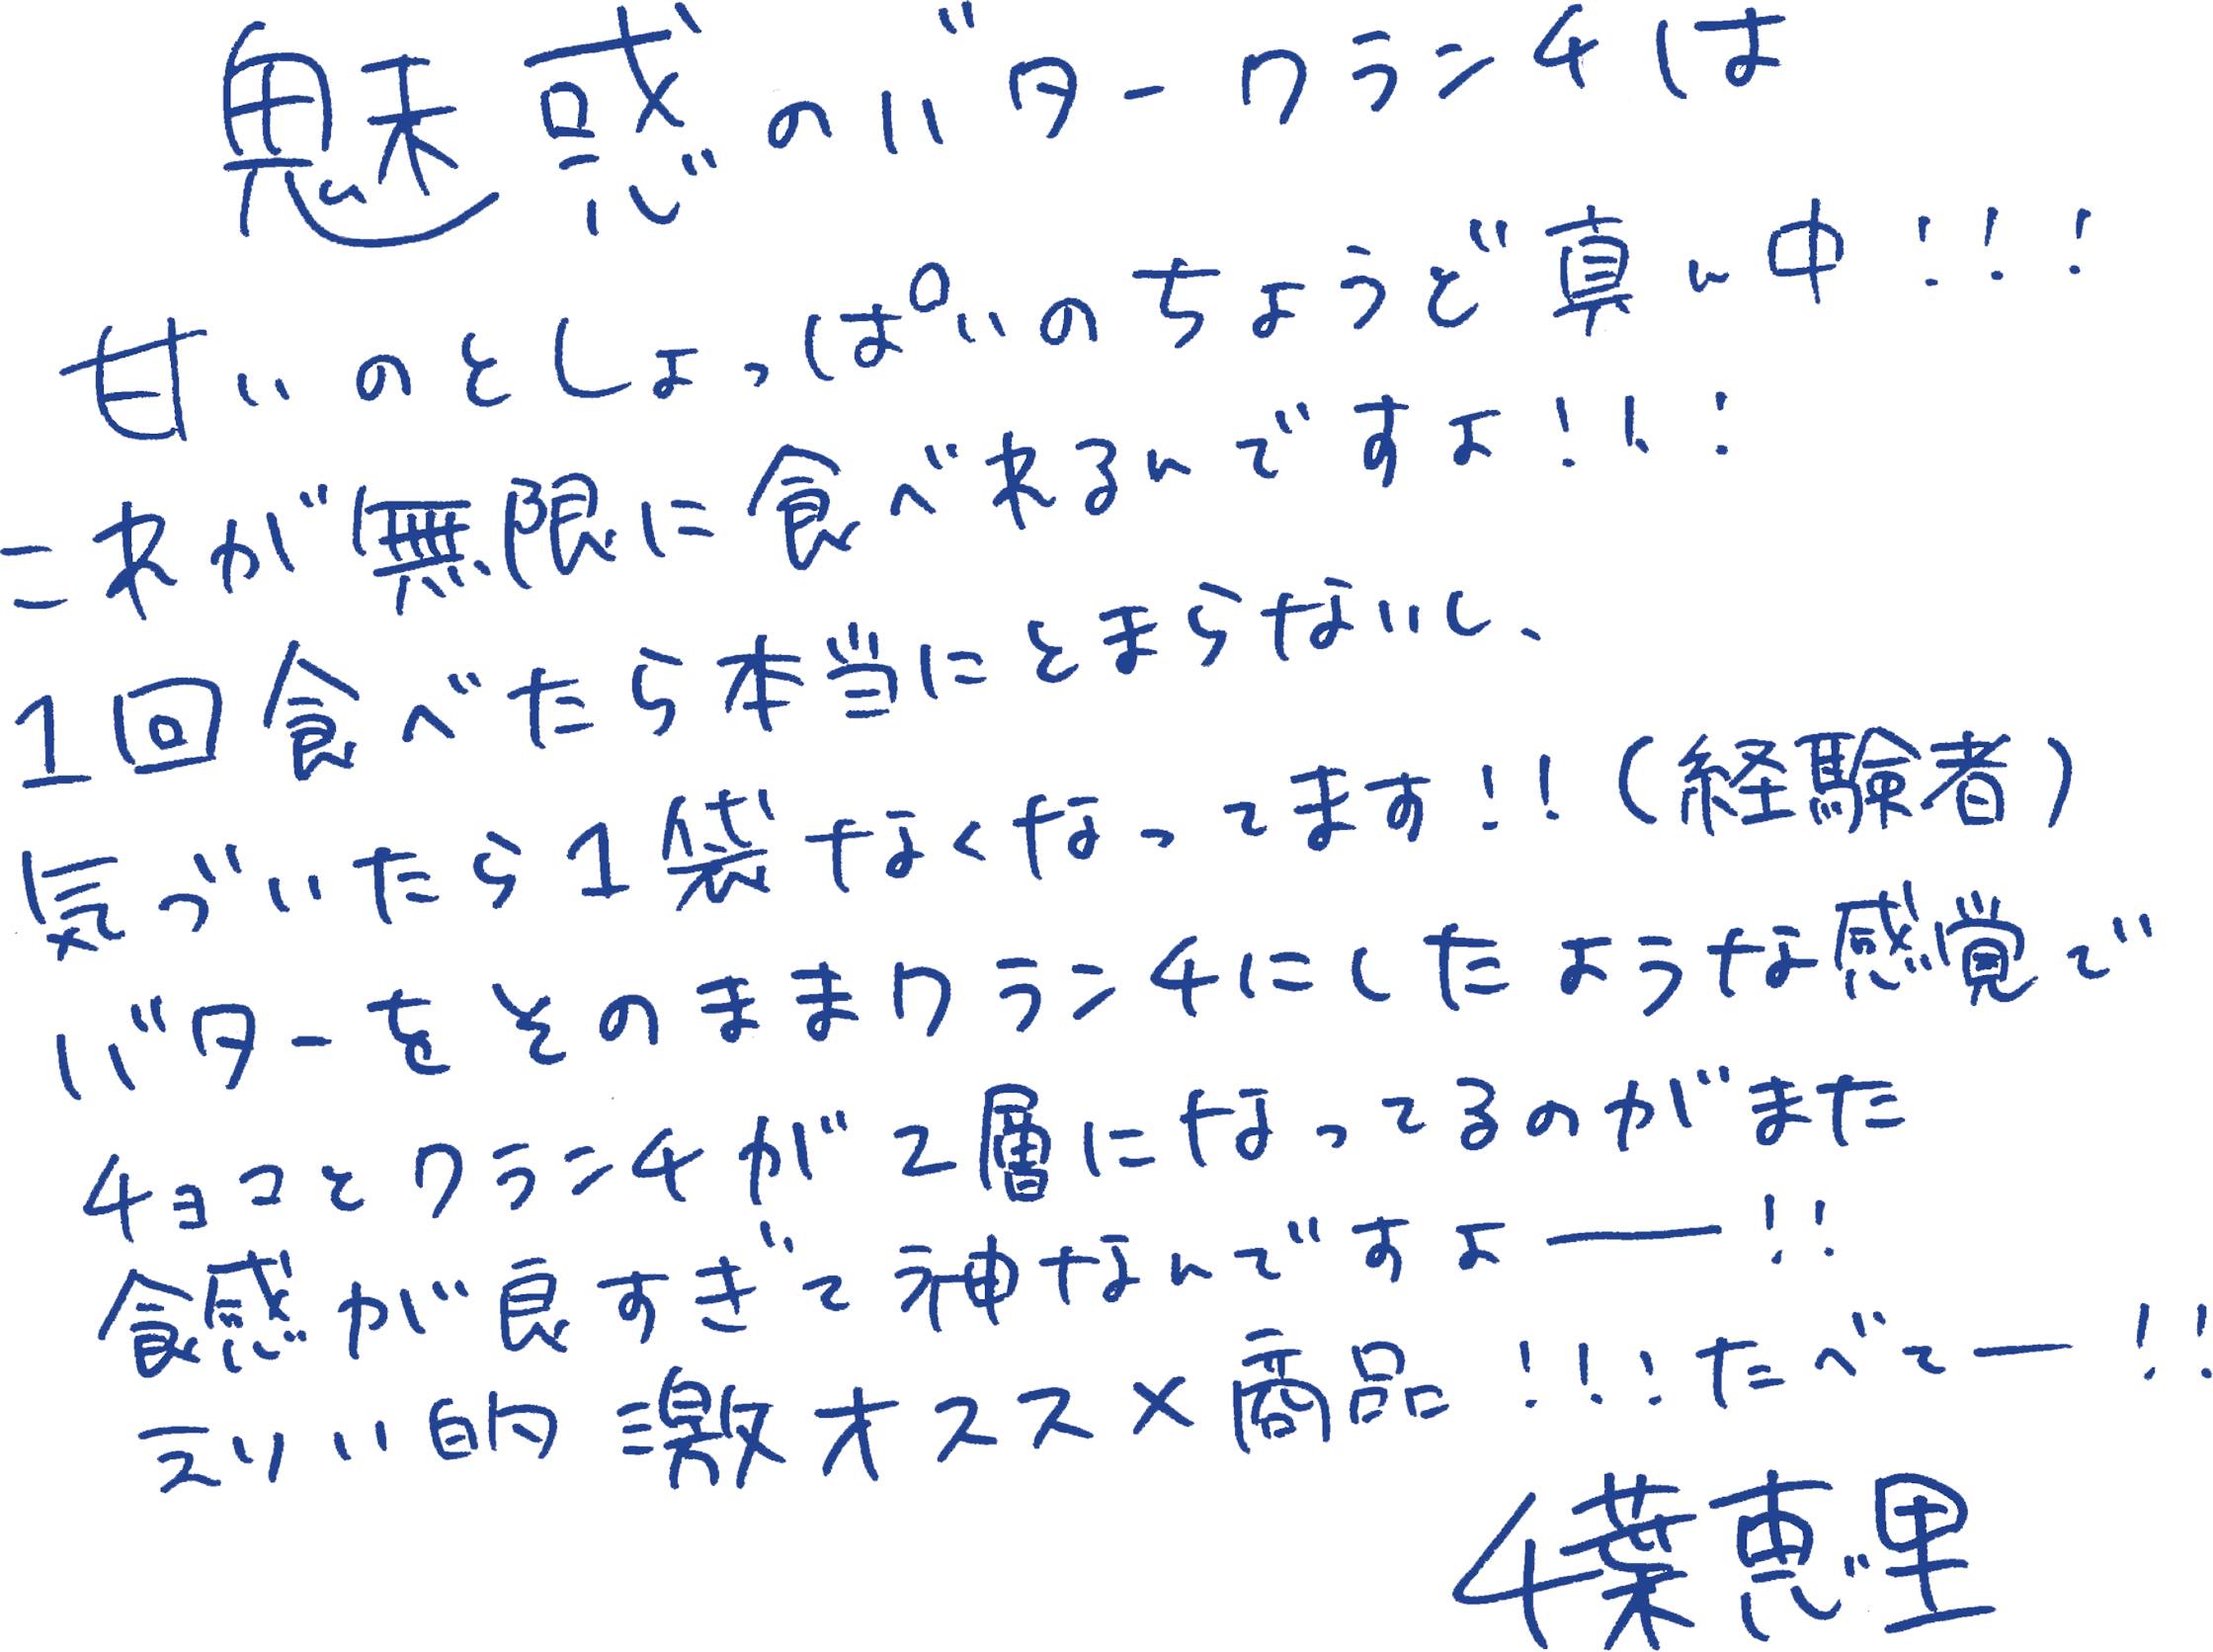 魅惑のバタークランチは
甘いのとしょっぱいのちょうど真ん中!!!
これが無限に食べれるんですよ!!!
1回食べたら本当にとまらないし、
気づいたら1袋なくなってます!!(経験者)
バターをそのままクランチにしたような感覚で
チョコとクランチが2層になってるのがまた
食感が良すぎて神なんですよー!!
えりい的激オススメ商品!!!たべてー!!
千葉恵里